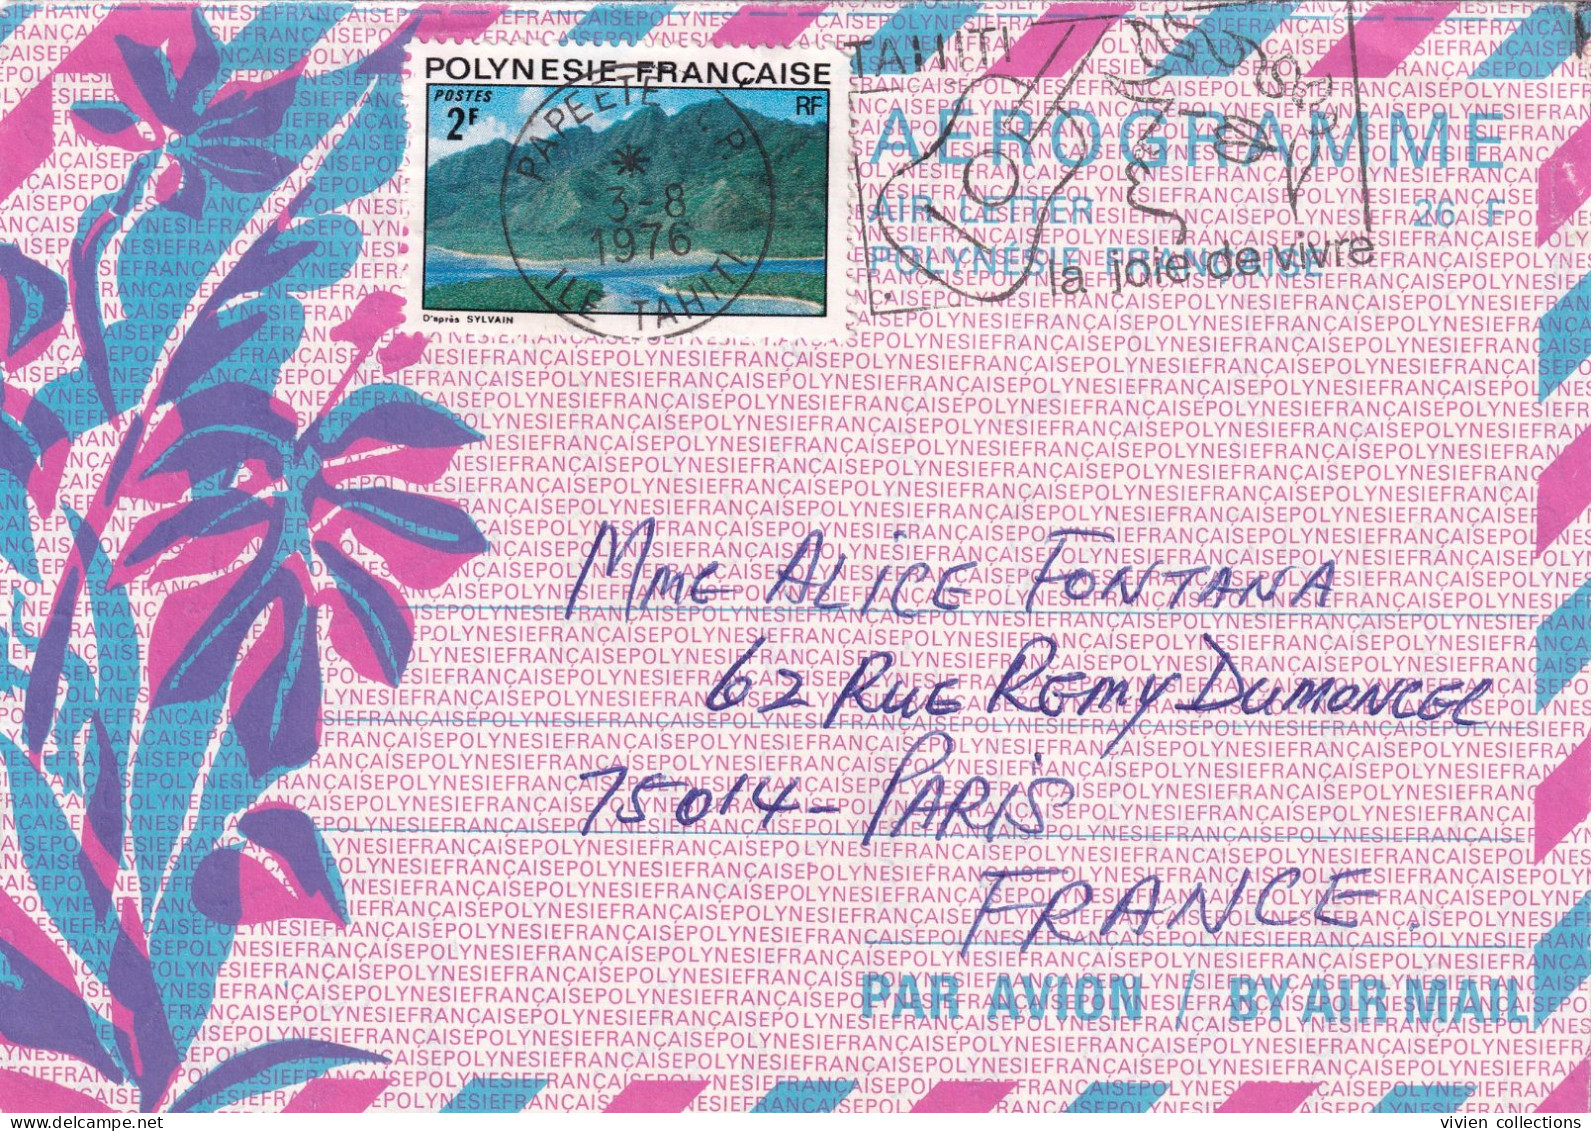 POLYNESIE FRANÇAISE
POSTES
2F
RF
D'après SYLVAIN
PAPEETE R.P.
3-8
1976
ILE TAHITI
TAHITI
la joie de vivre
AÉROGRAMME
AIR LETTER 26 F
POLYNÉSIE FRANÇAISE
Mme ALICE FONTANA
62 RUE REMY DUMONCEL
75014 - PARIS
FRANCE.
PAR AVION / BY AIR MAIL
vivien collections